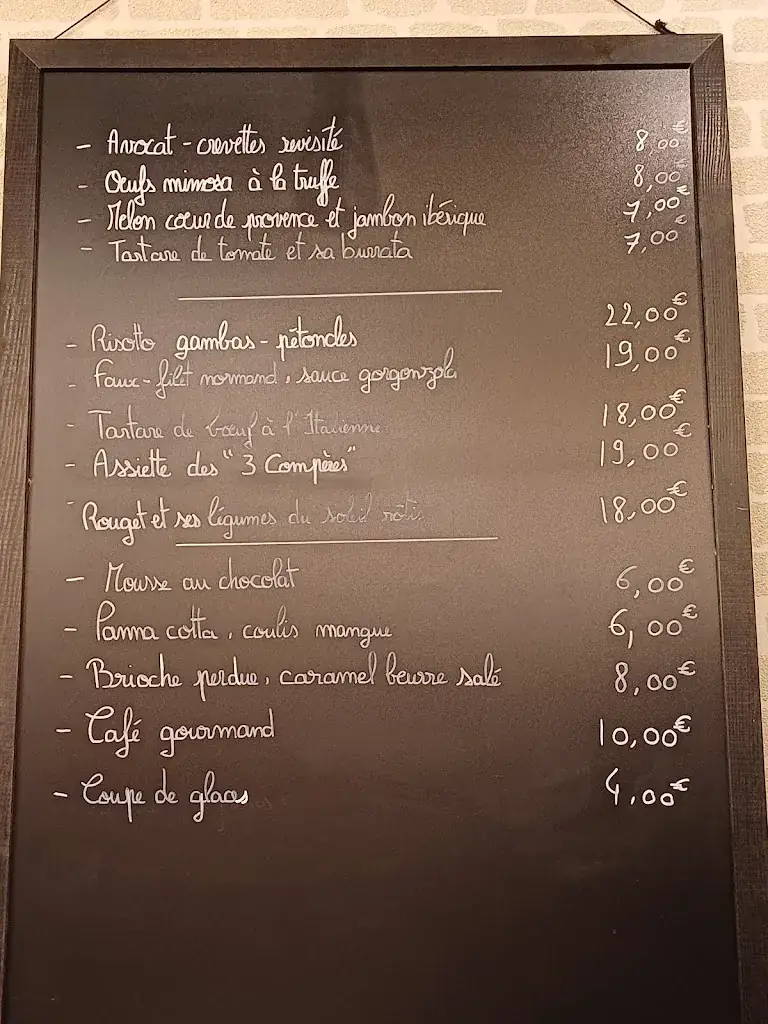 - Avocat - crevettes revisité 8,00€
- Oeufs mimosa à la truffe 8,00€
- Melon coeur de provence et jambon ibérique 7,00€
- Tartare de tomate et sa burrata 7,00€
- Risotto gambas - pétoncles 22,00€
- Faux-filet normand, sauce gorgonzola 19,00€
- Tartare de boeuf à l'Italienne 18,00€
- Assiette des "3 Compères" 19,00€
- Rouget et ses légumes du soleil rôtis 18,00€
- Mousse au chocolat 6,00€
- Panna cotta, coulis mangue 6,00€
- Brioche perdue, caramel beurre salé 8,00€
- Café gourmand 10,00€
- Coupe de glaces 4,00€